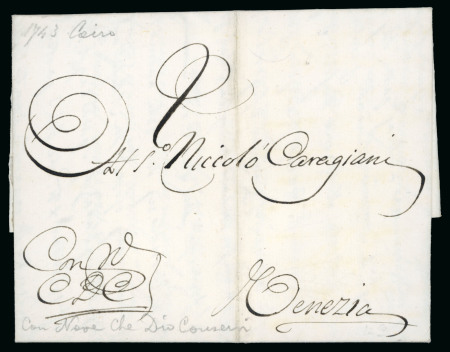 1743 Cairo
Al S.º Niccolò Caragiani
Con N
CDC
Venezia
Con Nave Che Dio Conservi